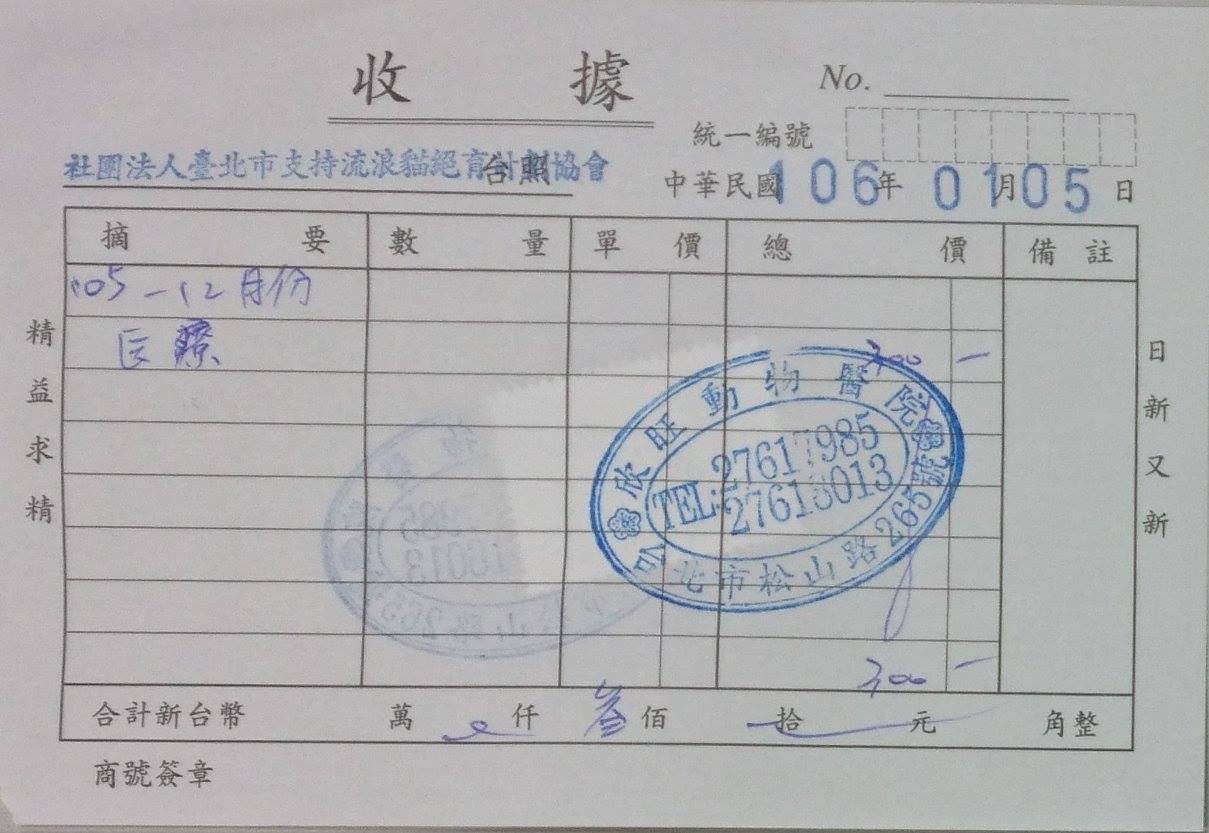 收據
No.
統一編號
社團法人臺北市支持流浪貓絕育計劃協會
台照
中華民國106年01月05日
摘要 數量 單價 總價 備註
105-12月份
医療 300 -
欣旺動物醫院
TEL:27617985
27613013
北市松山路265號
300 -
合計新台幣 萬 仟 叁佰 拾 元 角整
商號簽章
精益求精
日新又新